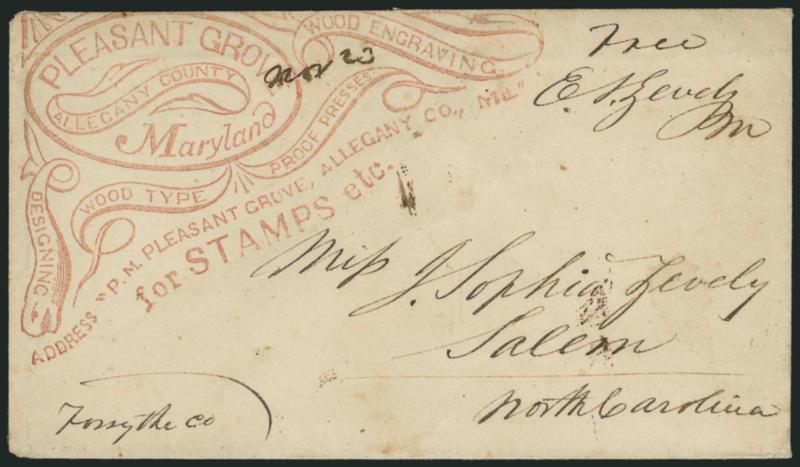 PLEASANT GROVE
ALLEGANY COUNTY
Maryland
Nov 23
WOOD ENGRAVING
PROOF PRESSES
WOOD TYPE
DESIGNING
ADDRESS "P.M. PLEASANT GROVE, ALLEGANY CO., Md."
for STAMPS etc.
Free
E. S. Zevely
Pm
Miss J. Sophia Zevely
Salem
North Carolina
Forsythe co